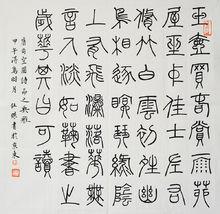 玉壺買春賞雨茆
屋坐中佳士左右
脩竹白雲初晴幽
鳥相逐眠琴綠陰
上有飛瀑落花無
言人淡如菊書之
歲華其曰可讀
唐司空圖詩品之典雅
甲午 月 書於京東